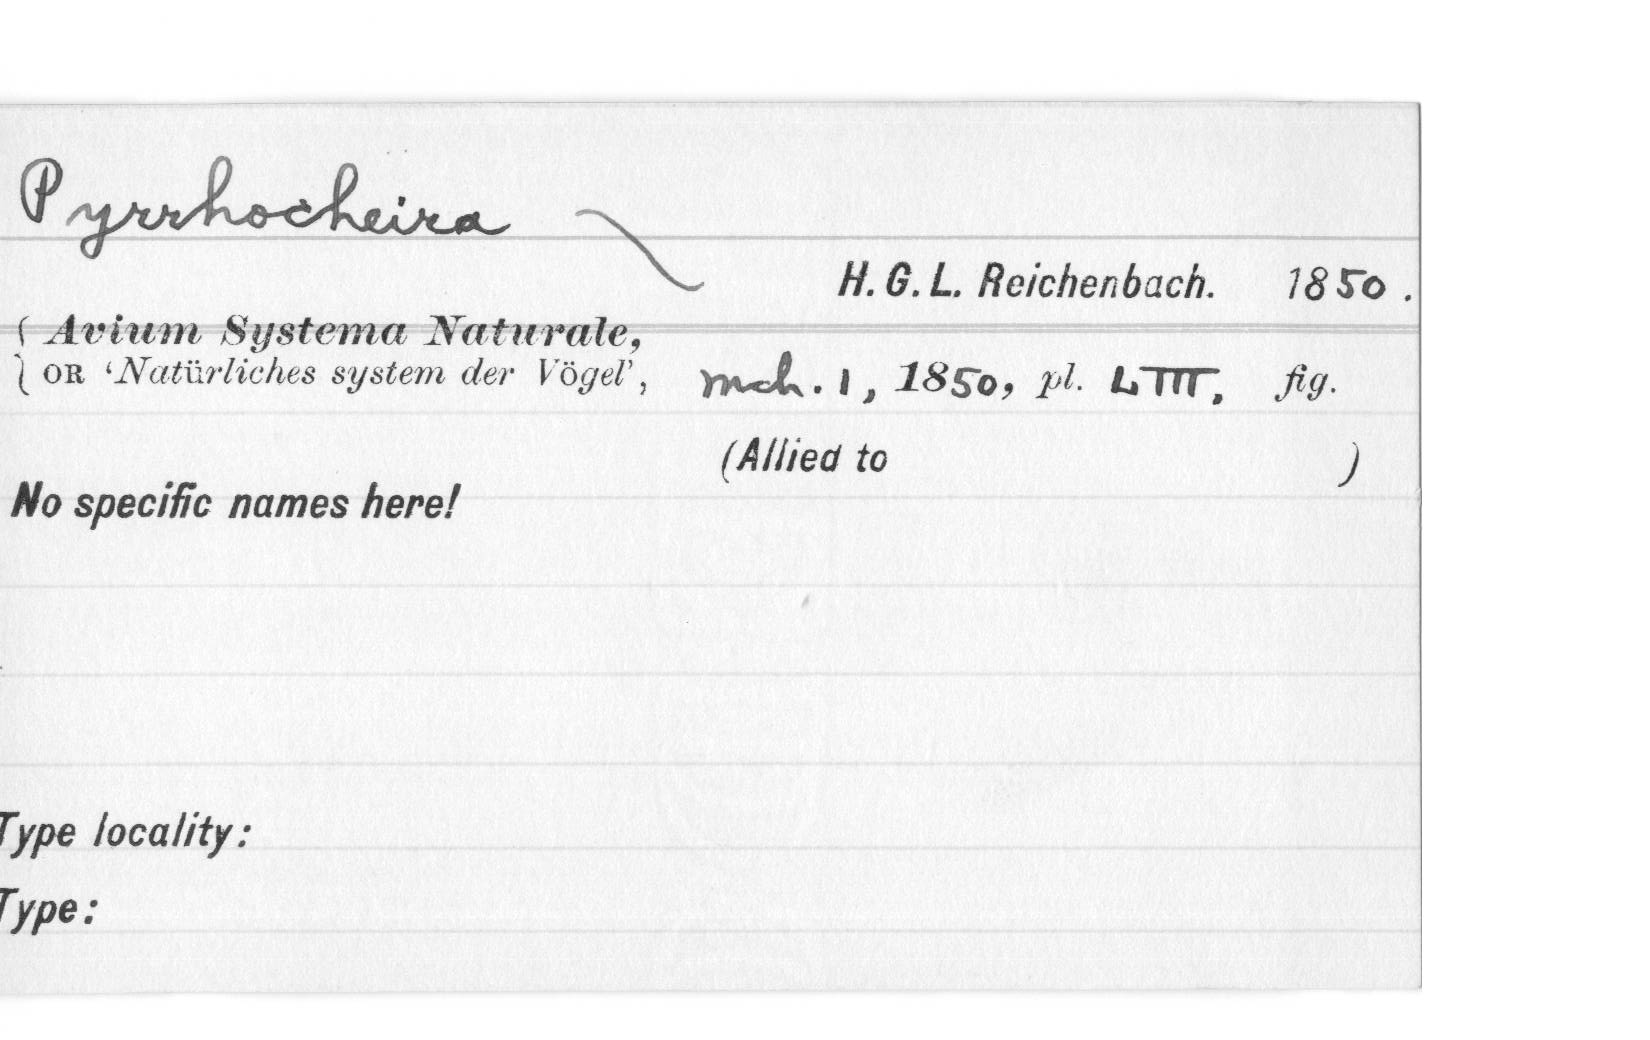 Pyrrhocheira
H. G. L. Reichenbach. 1850.
{ Avium Systema Naturale,
} OR 'Natürliches system der Vögel', mch. 1, 1850, pl. LIII, fig.
(Allied to )
No specific names here!
Type locality:
Type: